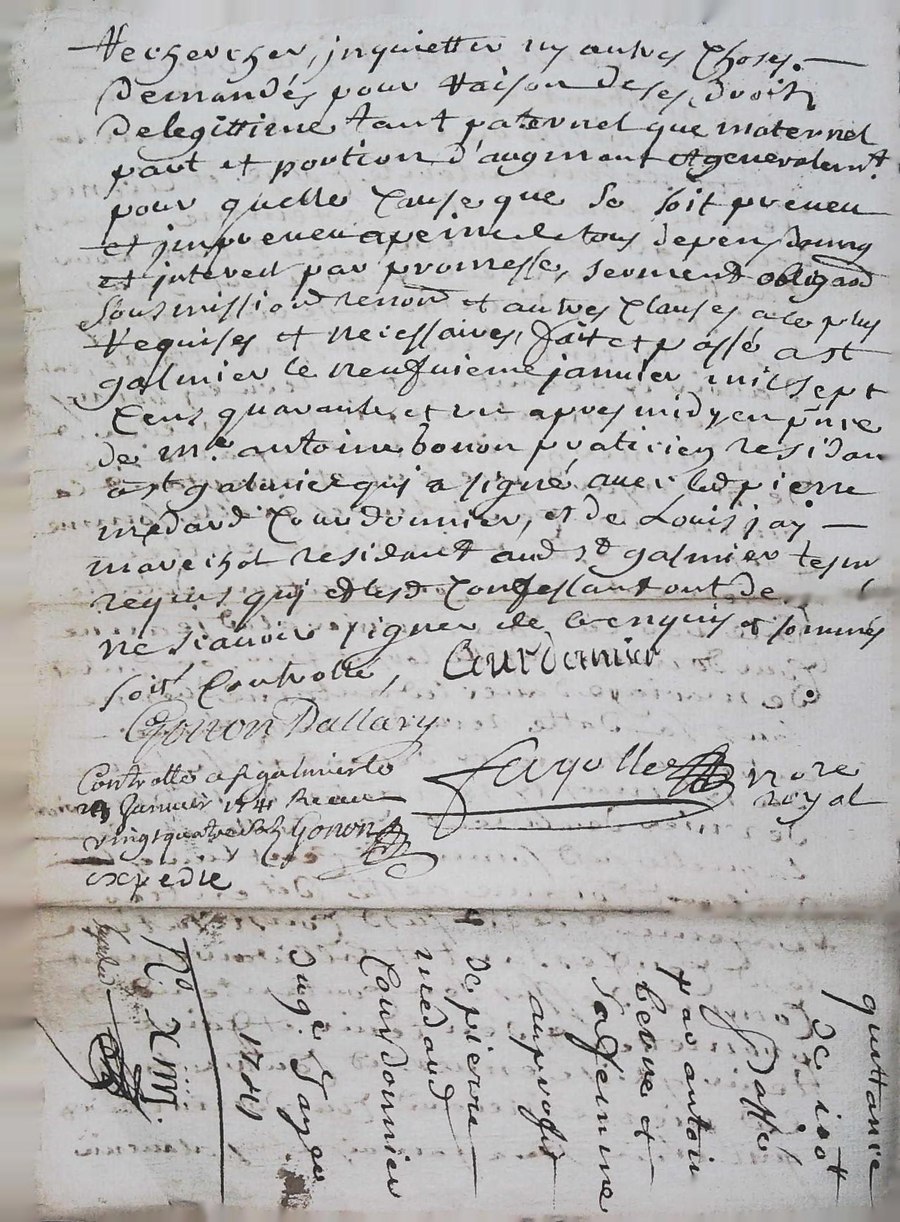 rechercher, jnquietter ny autres choses
demandés pour raison de ses droits
de legittime tant paternel que maternel
part et portion d'augment et generalemt
pour quelle cause que se soit preveu
et jmpreveu a peine de tous depens domg
et jnterest par promesse, serment obligaon
sousmission renonon et autres clauses a le plus
requises et necessaires, fait et passé a st
galmier le neufvieme janvier mil sept
cens quarante et un apres midy en pnce
de me. antoine bonon praticien residan
a st galmier qui a signé, avec led pierre
medard courdonnier, et de Louis jay
marechal residant aud st galmier tesm
requis qui et lesd confessant ont de
ne scavoir signer de ce enquis et sommés
soit controllé,
Courdonnier
Gonon Dallary
Fayolle nore
royal
Controllé a st galmier le
janvier 1741 Receu
vingt quatre sols Gonon
expedie
quittance
de 100 tt
passé
par antoi
et
sa femme
au profit
de pierre
medard
Courdonnier
du 9e janvier
1741
No. XIIII